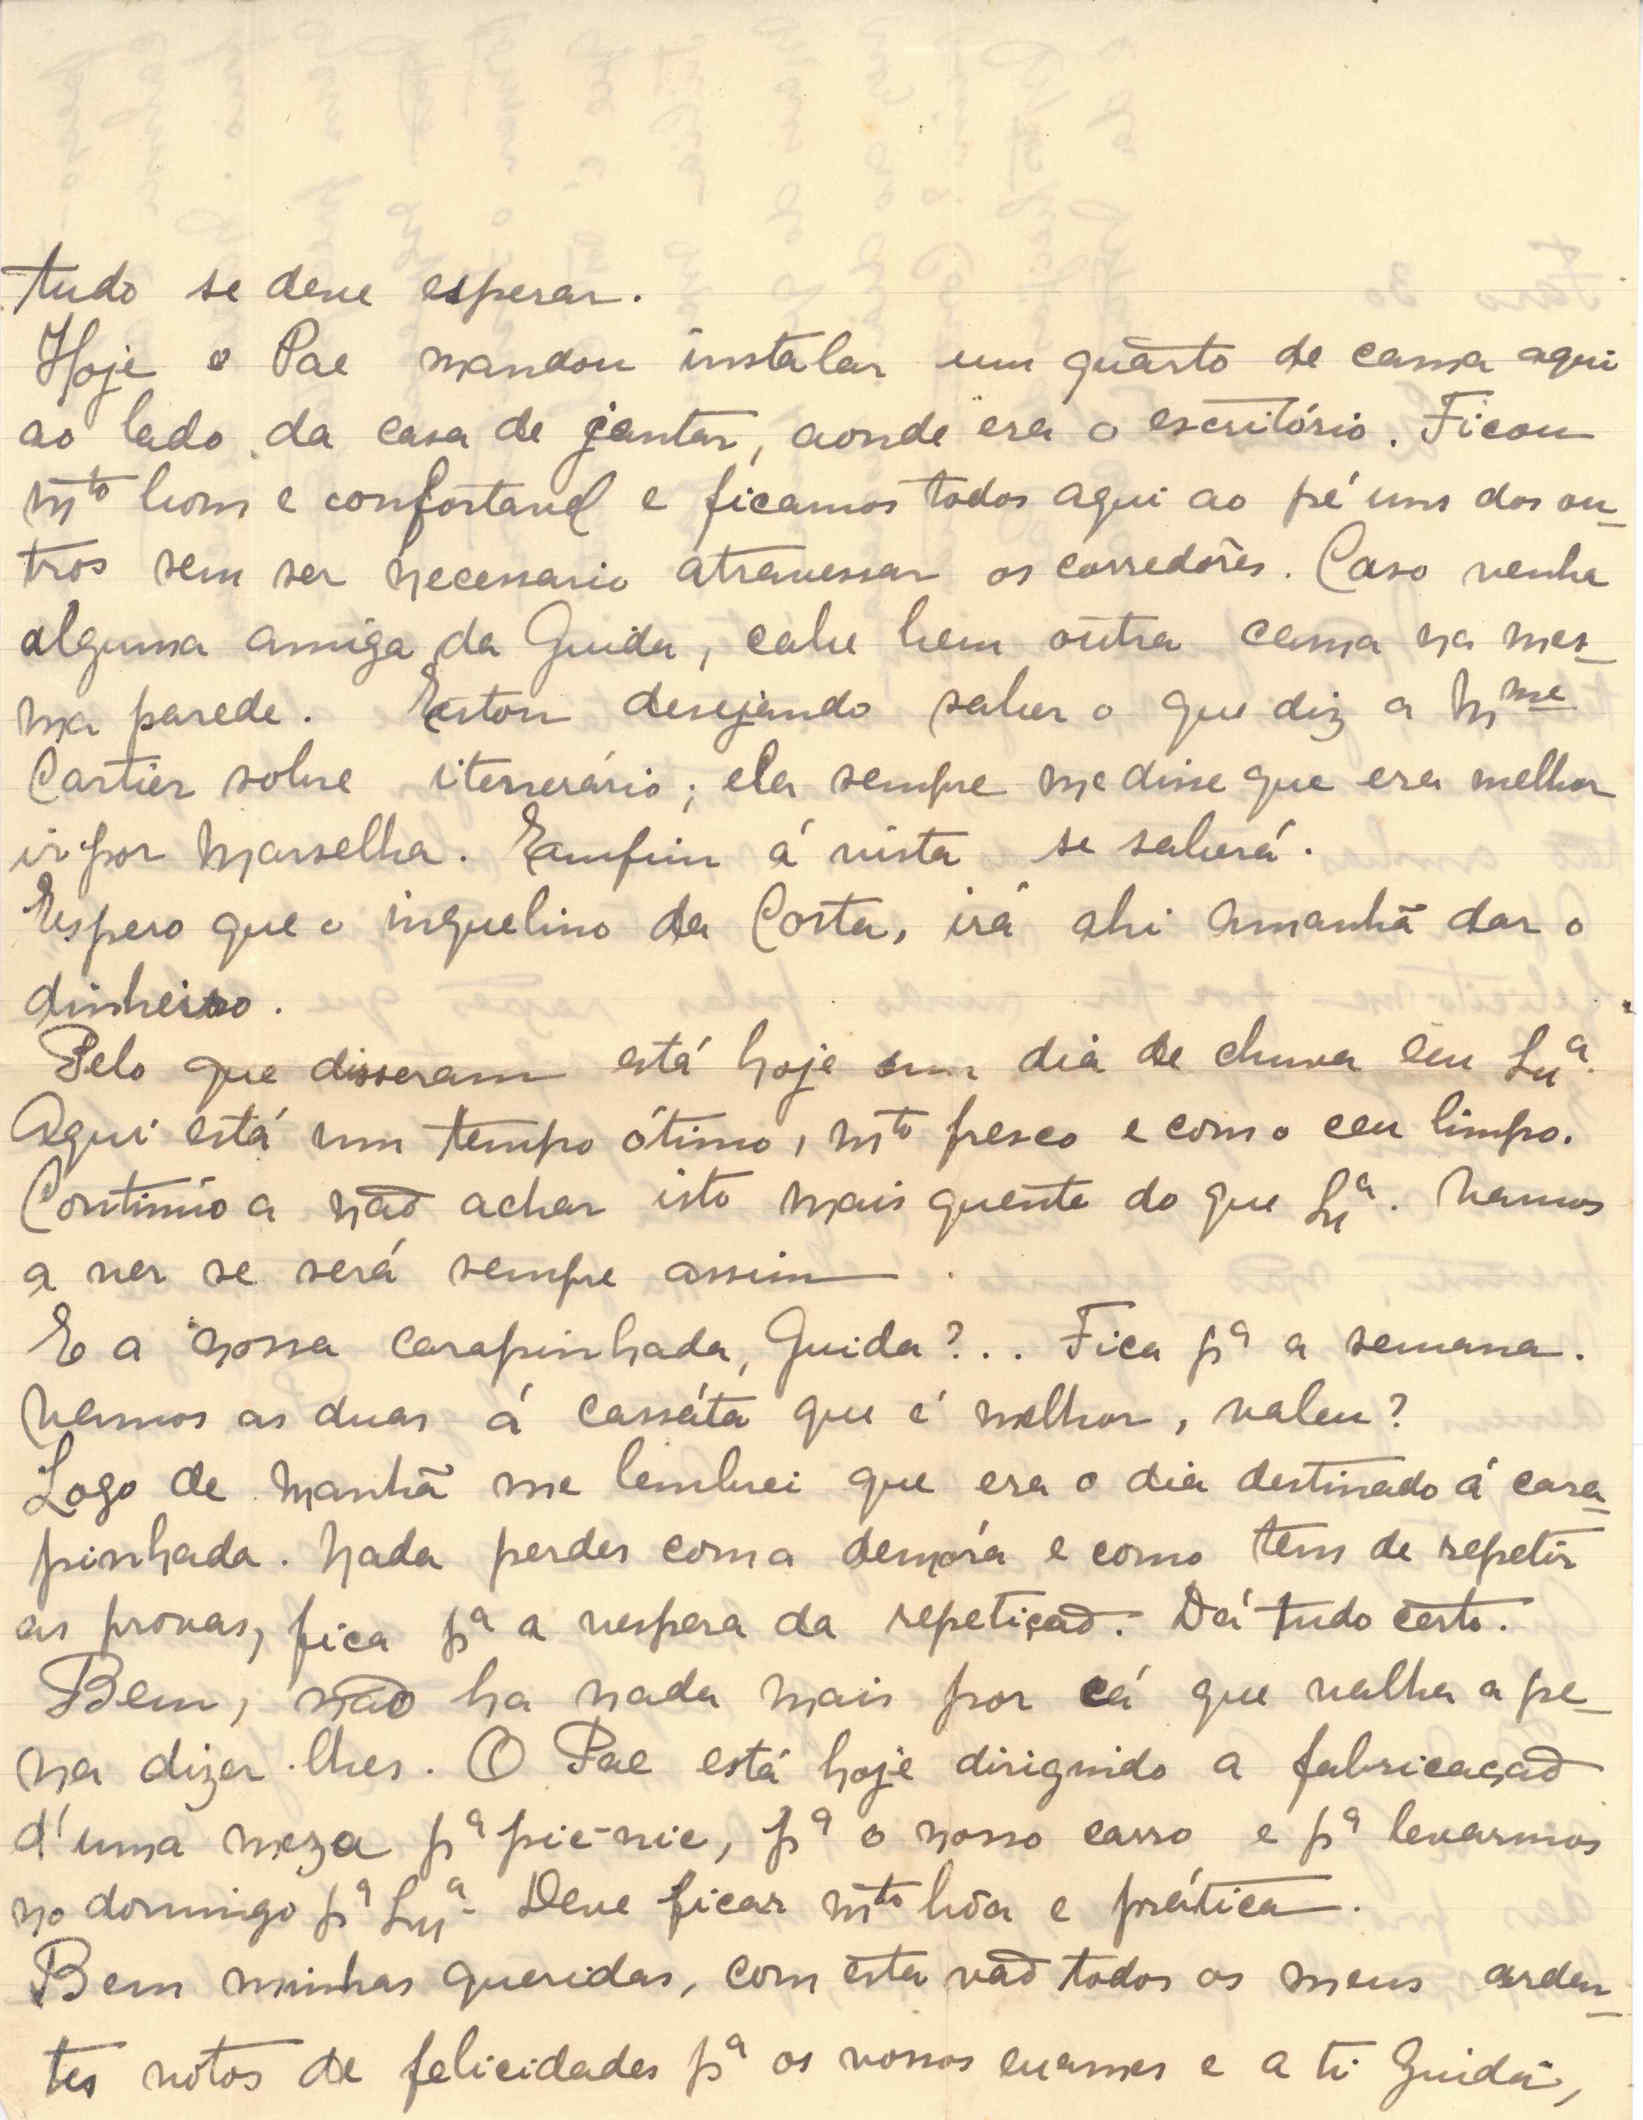 tudo se deve esperar.
Hoje o Pae mandou instalar um quarto de cama aqui
ao lado da casa de jantar, aonde era o escritório. Ficou
mto bom e confortavel e ficamos todos aqui ao pé uns dos ou-
tros sem ser necessario atravessar os corredôres. Caso venha
alguma amiga da Guida, cabe bem outra cama na mes-
ma parede. Estou desejando saber o que diz a Mme
Cartier sobre iternerário; ela sempre me disse que era melhor
ir por Marselha. Emfim á vista se saberá.
Espero que o inquelino da Costa, irá ahi amanhã dar o
dinheiro.
Pelo que disseram está hoje um dia de chuva em Lxa.
Aqui está um tempo ótimo, mto fresco e com o ceu limpo.
Continúo a não achar isto mais quente do que Lxa. Vamos
a ver se será sempre assim.
E a nossa carapinhada, Guida?... Fica pa a semana.
Vamos as duas á cassáta que é melhor, valeu?
Logo de manhã me lembrei que era o dia destinado á cara-
pinhada. Nada perdes com a demóra e como tens de repetir
as provas, fica pa a vespera da repetição. Dá tudo certo.
Bem, não ha nada mais por cá que valha a pe-
na dizer-lhes. O Pae está hoje dirigindo a fabricação
d'uma meza pa pic-nic, pa o nosso carro e pa levarmos
no domingo pa Lxa. Deve ficar mto bôa e prática.
Bem minhas queridas, com esta vão todos os meus arden-
tes vótos de felicidades pa os vossos exames e a ti Guida,